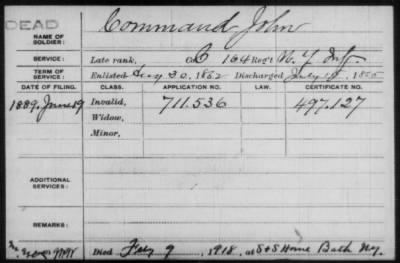 DEAD
NAME OF SOLDIER: Command John
SERVICE: Late rank, Co. C 164 Reg't N. Y. Inf.
TERM OF SERVICE: Enlisted Aug 30, 1862 Discharged July 15, 1865
DATE OF FILING. CLASS. APPLICATION NO. LAW. CERTIFICATE NO.
1889. June 19 Invalid, 711.536 497.127
Widow,
Minor,
ADDITIONAL SERVICES:
REMARKS:
Died Feby 9, 1918, at S & S Home Bath Ny.